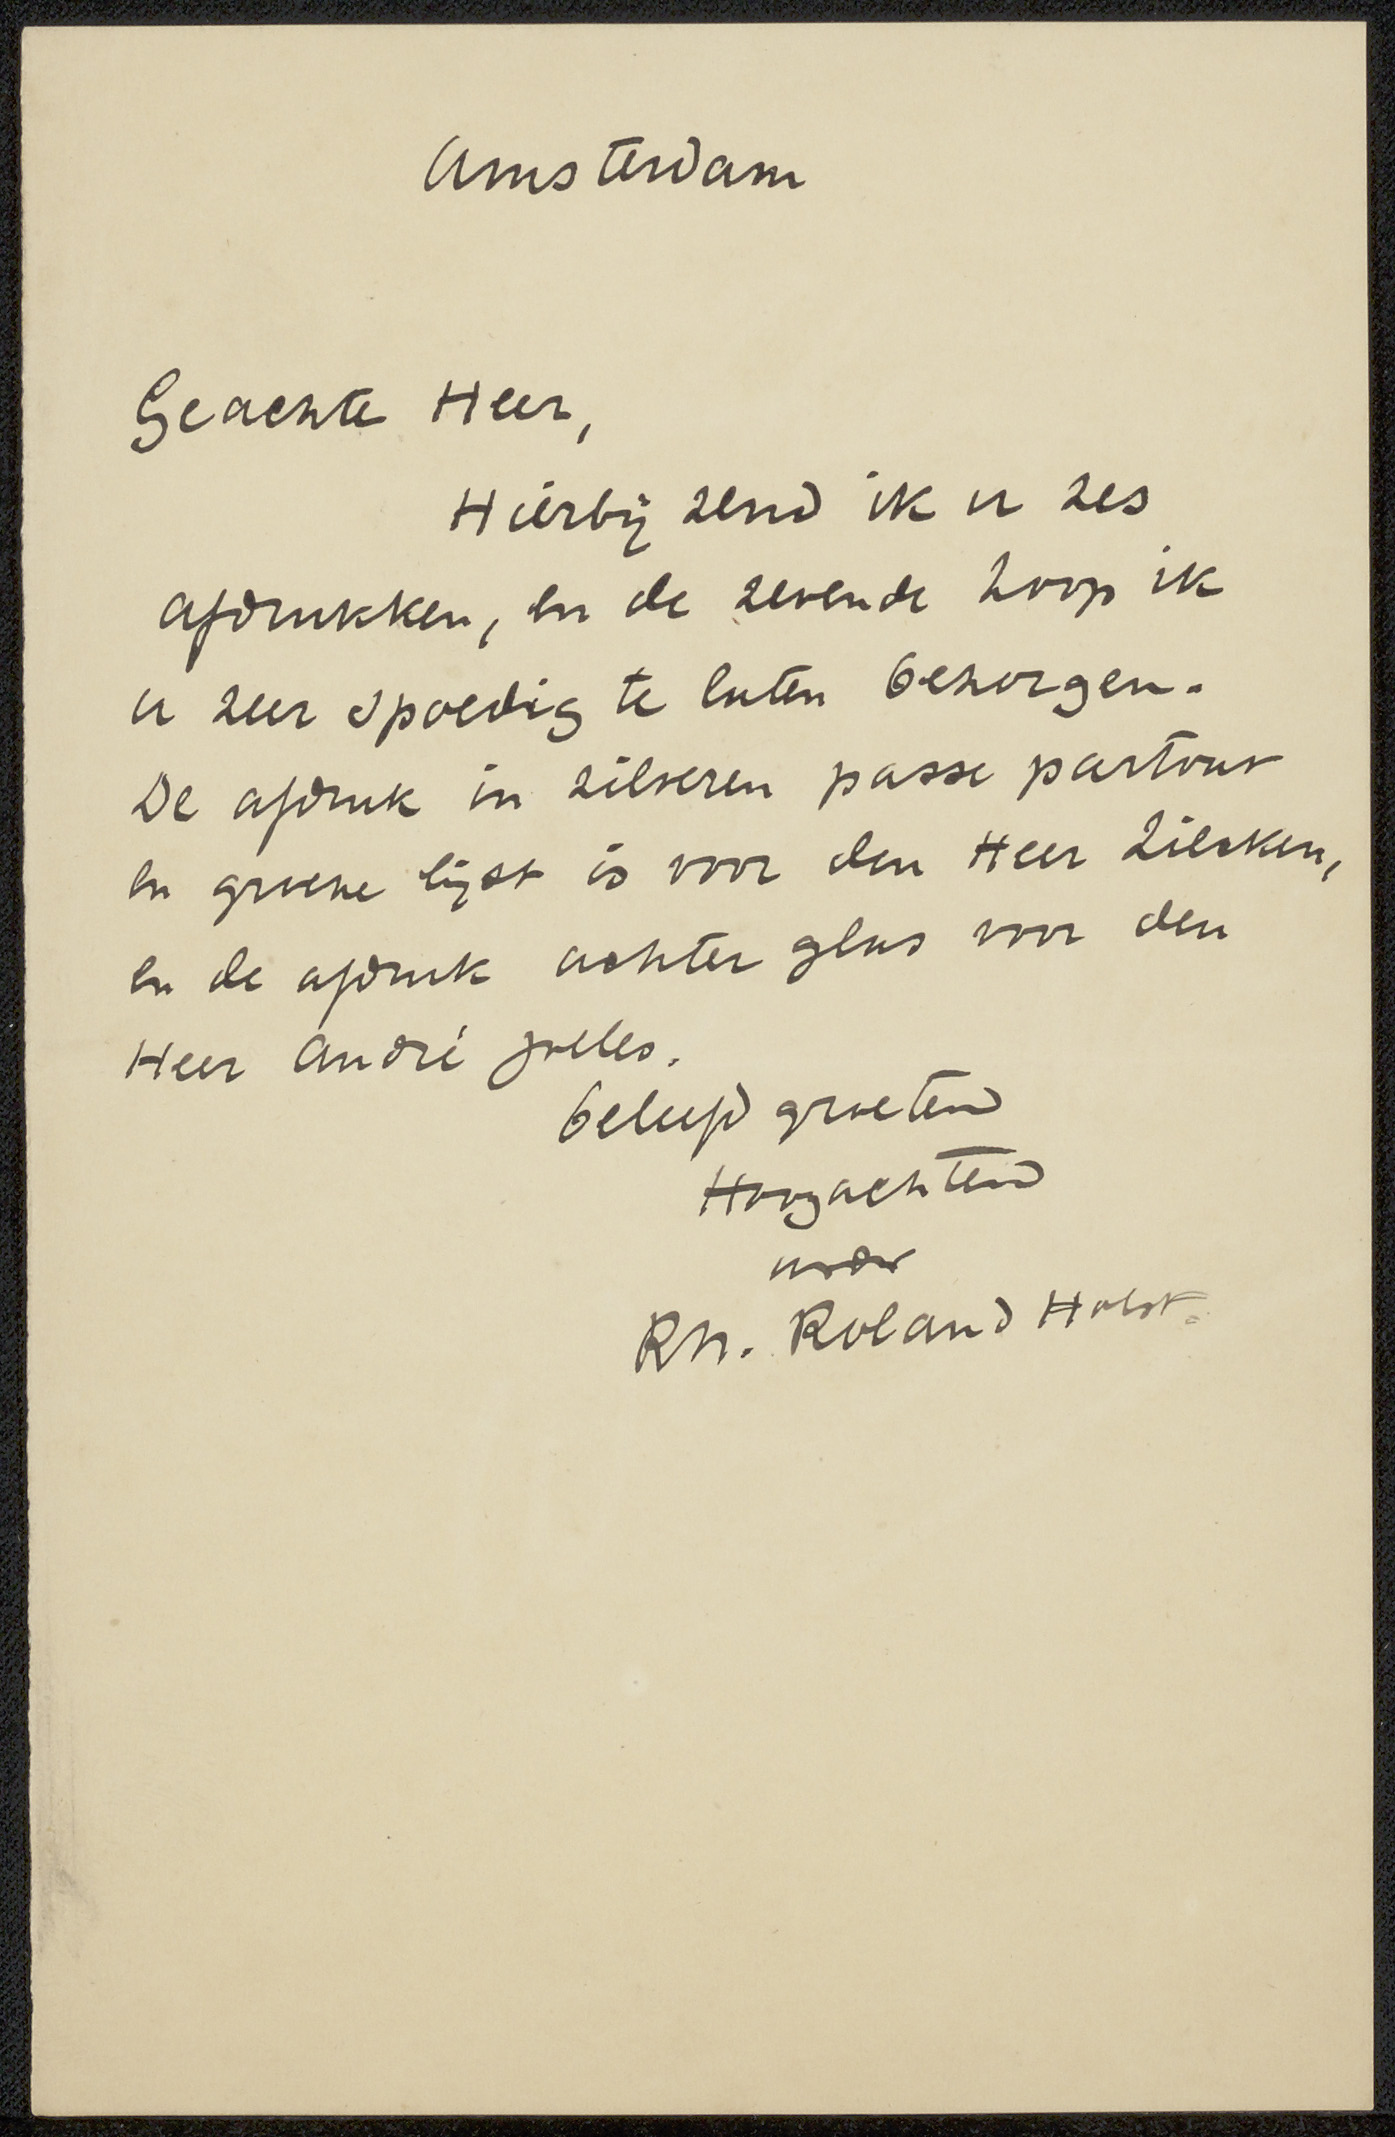 Amsterdam
Geachte Heer,
Hierbij zend ik u zes
afdrukken, en de zevende hoop ik
u zeer spoedig te laten bezorgen.
De afdruk in zilveren passe partout
en groene lijst is voor den Heer Zilcken,
en de afdruk achter glas voor den
Heer André Jolles.
beleefd groetend
Hoogachtend
uwdr
RN. Roland Holst.